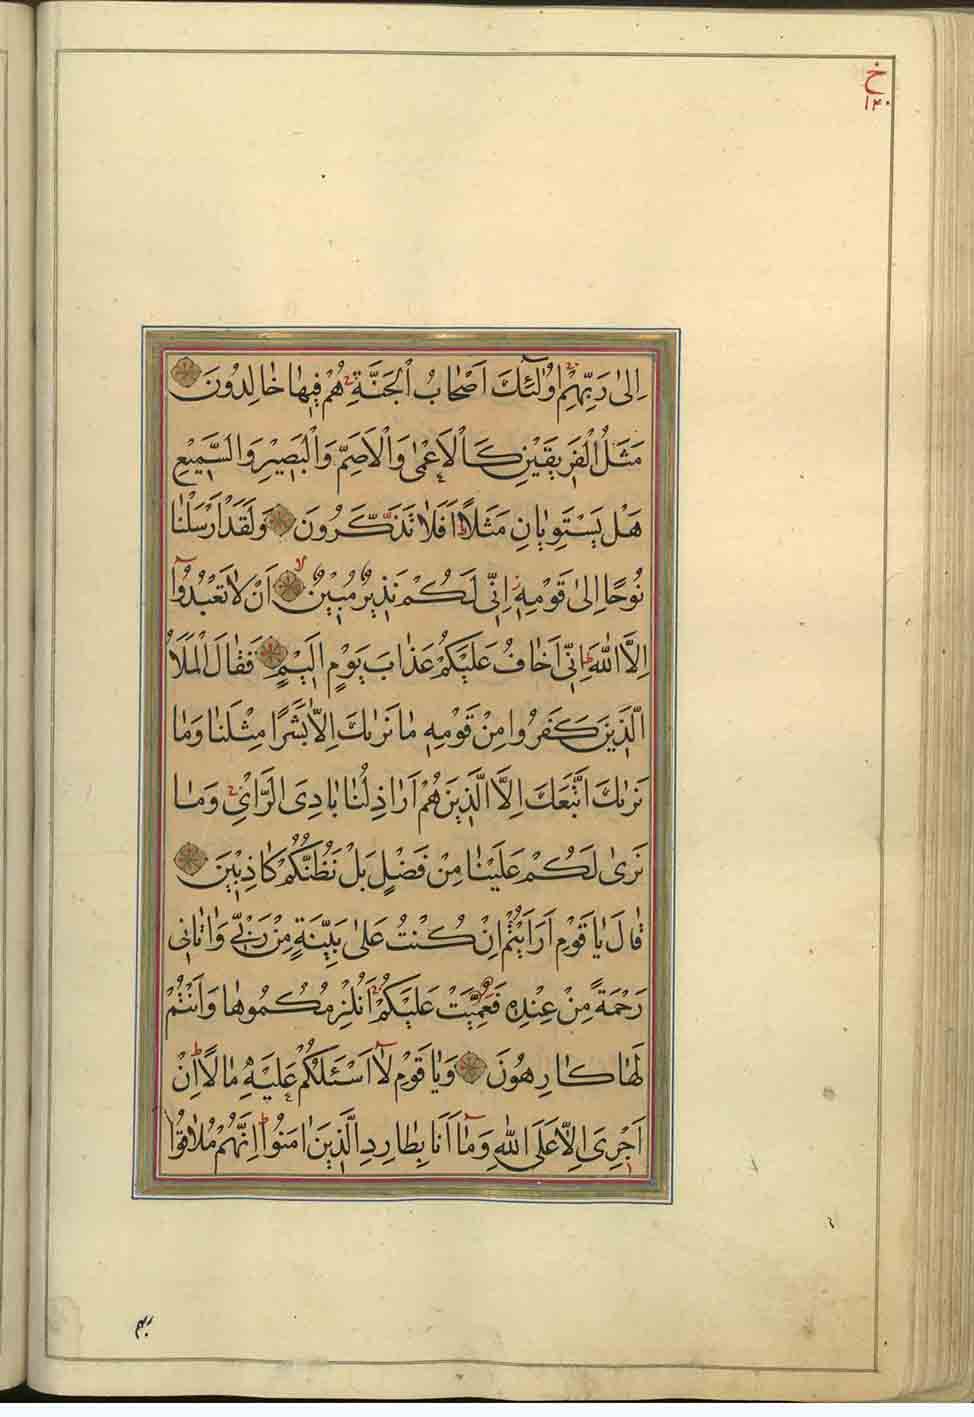 خ
١٣٠
اِلىٰ رَبِّهِمْ اُولٰئِكَ اَصْحَابُ الْجَنَّةِ هُمْ فِيهَا خَالِدُونَ
مَثَلُ الْفَرِيقَيْنِ كَالْاَعْمٰى وَالْاَصَمِّ وَالْبَصِيْرِ وَالسَّمِيْعِ
هَلْ يَسْتَوِيَانِ مَثَلًا اَفَلَا تَذَكَّرُونَ وَلَقَدْ اَرْسَلْنَا
نُوحًا اِلىٰ قَوْمِهٖ اِنِّى لَكُمْ نَذِيرٌ مُبِيْنٌ اَنْ لَا تَعْبُدُوا
اِلَّا اللّٰهَ اِنِّى اَخَافُ عَلَيْكُمْ عَذَابَ يَوْمٍ اَلِيْمٍ فَقَالَ الْمَلَاُ
الَّذِينَ كَفَرُوا مِنْ قَوْمِهٖ مَا نَرٰيكَ اِلَّا بَشَرًا مِثْلَنَا وَمَا
نَرٰيكَ اتَّبَعَكَ اِلَّا الَّذِينَ هُمْ اَرَاذِلُنَا بَادِىَ الرَّاْىِ وَمَا
نَرىٰ لَكُمْ عَلَيْنَا مِنْ فَضْلٍ بَلْ نَظُنُّكُمْ كَاذِبِيْنَ
قَالَ يَا قَوْمِ اَرَاَيْتُمْ اِنْ كُنْتُ عَلىٰ بَيِّنَةٍ مِنْ رَبِّى وَاٰتَانِى
رَحْمَةً مِنْ عِنْدِهٖ فَعُمِّيَتْ عَلَيْكُمْ اَنُلْزِمُكُمُوهَا وَاَنْتُمْ
لَهَا كَارِهُونَ وَيَا قَوْمِ لَا اَسْئَلُكُمْ عَلَيْهِ مَالًا اِنْ
اَجْرِىَ اِلَّا عَلَى اللّٰهِ وَمَا اَنَا بِطَارِدِ الَّذِينَ اٰمَنُوا اِنَّهُمْ مُلَاقُوا
ربهم